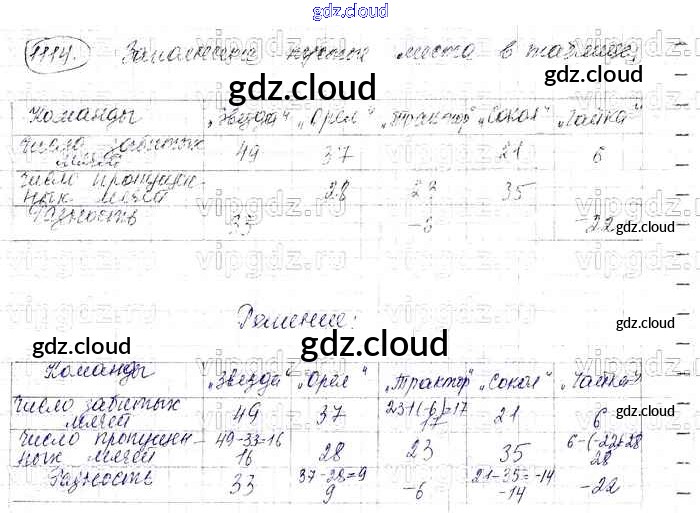 gdz.cloud
1114. Заполните пустые места в таблице
gdz.cloud gdz.cloud
Команды „Звезда“ „Орел“ „Трактор“ „Сокол“ „Чайка“
Число забитых мячей 49 37 21 6
Число пропущен-
ных мячей 28 23 35
Разность 33 -6 -22
gdz.cloud
Решение:
gdz.cloud
gdz.cloud gdz.cloud gdz.cloud
Команды „Звезда“ „Орел“ „Трактор“ „Сокол“ „Чайка“
Число забитых 23+(-6)=17
мячей 49 37 17 21 6
Число пропущен- 49-33=16 6-(-22)=28
ных мячей 16 28 23 35 28
Разность 37-28=9 21-35=-14
33 9 -6 -14 -22
gdz.cloud gdz.cloud gdz.cloud